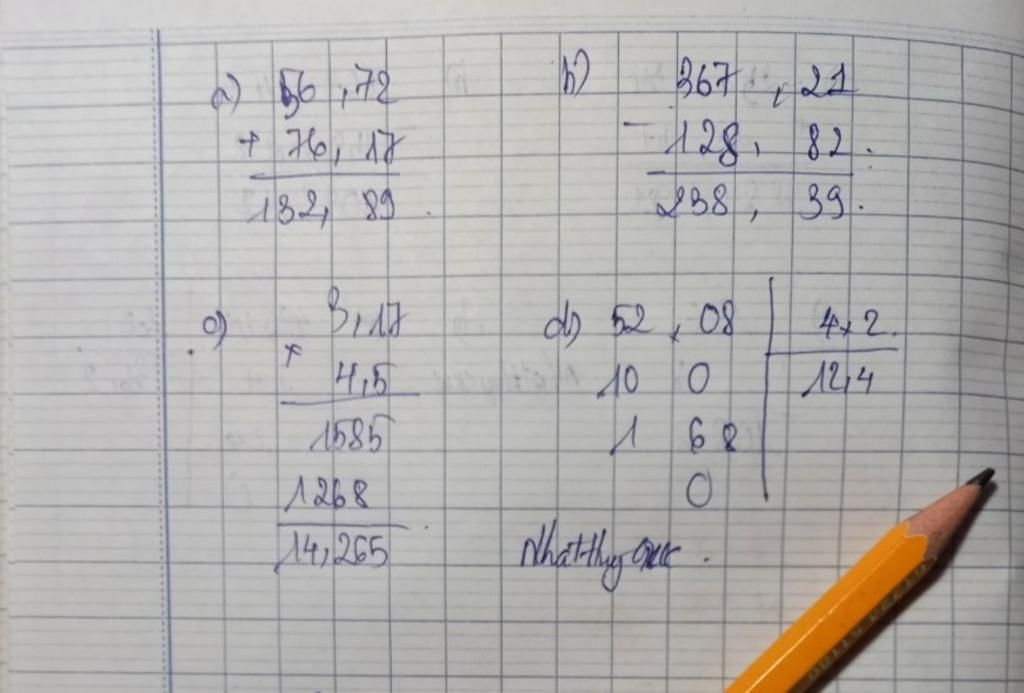 a) 56,72
+ 76,17
132,89
b) 367,21
- 128,82
238,39
c) 3,17
×
4,5
1585
1268
14,265
d) 52,08 4,2
10 0 12,4
1 68
0